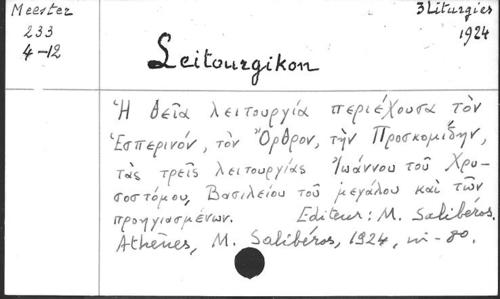 Meester 3 Liturgies
233 1924
4-12
Leitourgikon
Ἡ θεῖα λειτουργία περιέχουσα τὸν
Ἑσπερινόν, τὸν Ὄρθρον, τὴν Προσκομιδην,
τὰς τρεῖς λειτουργίας Ἰωάννου τοῦ Χρυ-
σοστόμου, Βασιλείου τοῦ μεγάλου καὶ τῶν
προηγιασμένων. Editeur: M. Salibéros.
Athènes, M. Salibéros, 1924, in-80.